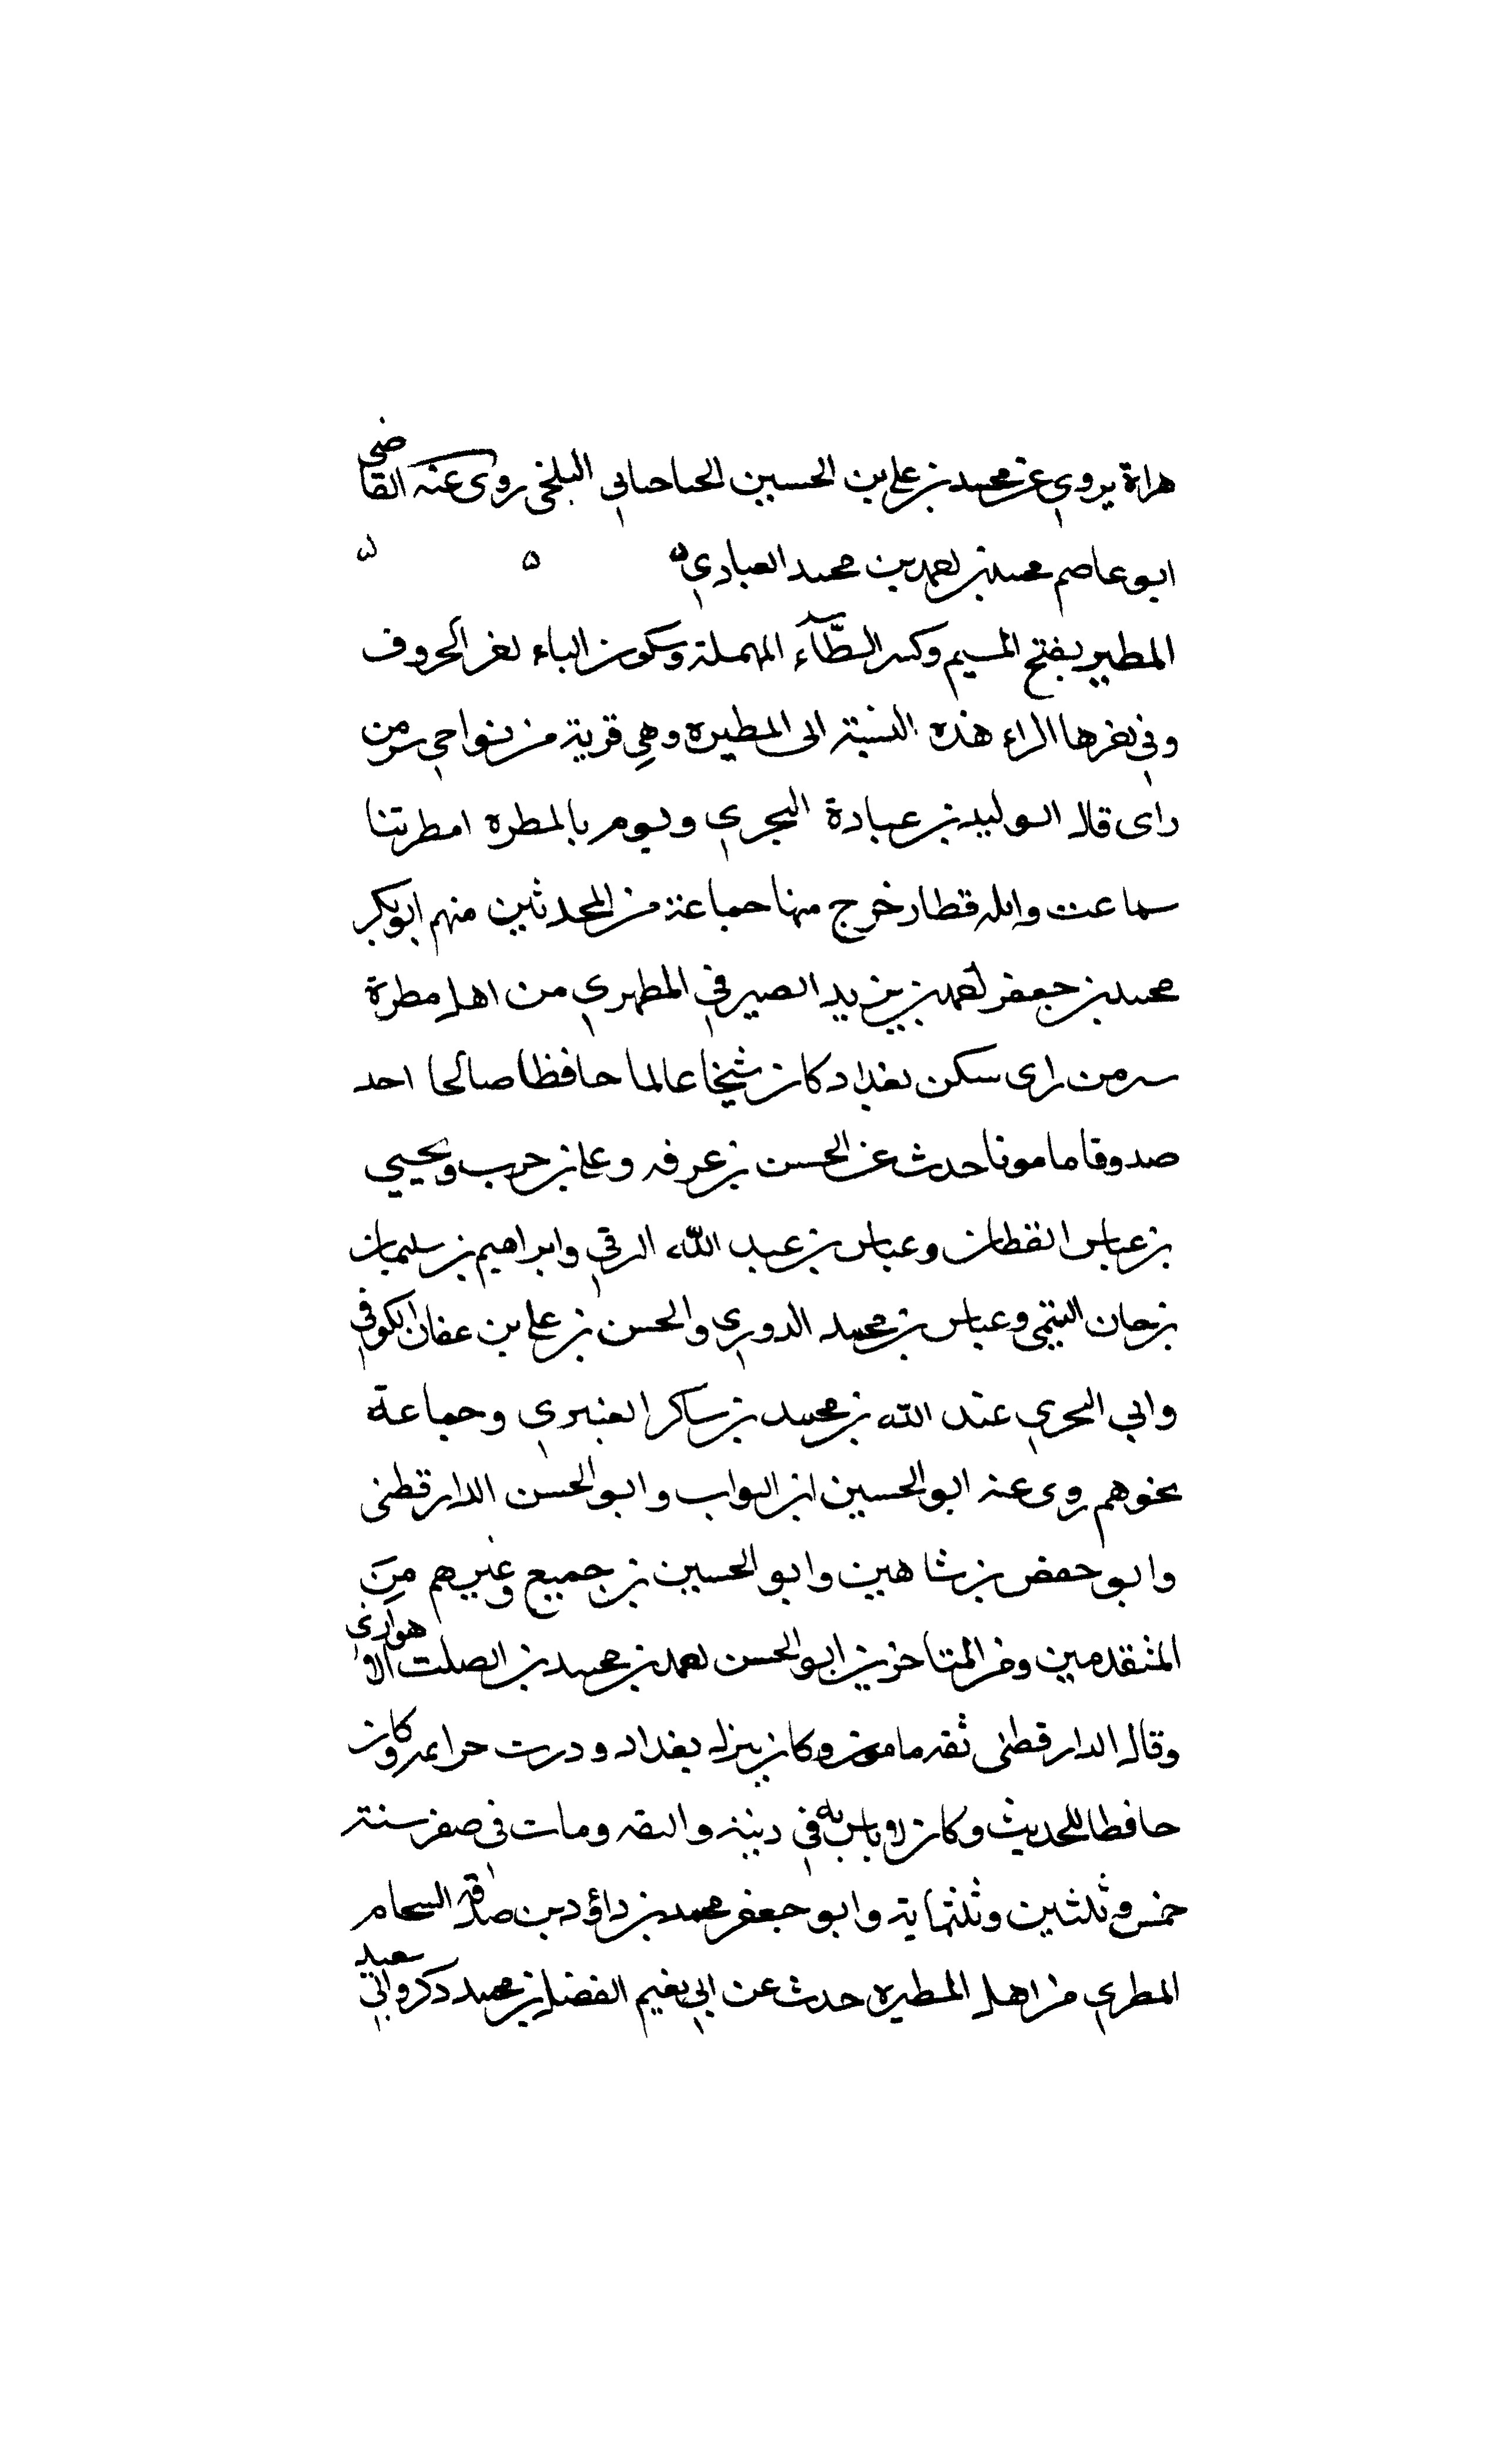 هراة يروي عن محمد بن علي بن الحسين الحباحباني البلخي روى عنه القاضي
ابو عاصم محمد بن احمد بن محمد العبادي ه ه ه
المطير بفتح الميم وكسر الطآء المهملة وسكون الياء اخر الحروف
وفي اخرها الراء هذه النسبة الى المطيره وهي قرية من نواحي سر من
راى قال الوليد بن عبادة البحري ويوم بالمطره امطرتنا
سماعت وابله قطار خرج منها جماعة من المحدثين منهم ابو بكر
محمد بن جعفر احمد بن يزيد الصيرفي المطيري من اهل مطرة
سر من راى سكن بغداد كان شيخا عالما حافظا صالحا احد
صدوقا مامونا حدث عن الحسن بن عرفه وعلي بن حرب ويحيى
بن عباس القطان وعباس بن عبد الله الرقي وابراهيم بن سليمان
بن حان التيمي وعباس بن محمد الدوري والحسن بن علي بن عفان الكوفي
وابي البحري عند الله بن محمد بن ساكر العنبري وجماعة
نحوهم روى عنه ابو الحسين ابن البواب وابو الحسن الدارقطني
وابو حفص بن شاهين وابو الحسين بن جميع وغيرهم من
المتقدمين ومن المتاخرين ابو الحسن احمد بن محمد بن الصلت الاهوازي
وقال الدارقطني ثقه مامون وكان ينزل بغداد ودرت حرايمه وكان
حافظا للحديث وكان لا باس به في دينه والثقه ومات في صفر سنة
خمس وثلثين وثلثماية وابو جعفر محمد بن داؤد بن صدقه الشحام
المطري من اهل المطيره حدث عن ابي نعيم الفضل بن محمد دكر وابي سعيد